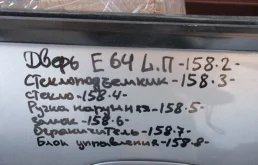 Дверь Е 64 L.П -158.2-
Стеклоподъемник -158.3-
стекло -158.4-
Ручка наружняя -158.5-
замок -158.6-
ограничитель -158.7-
Блок управления -158.8-